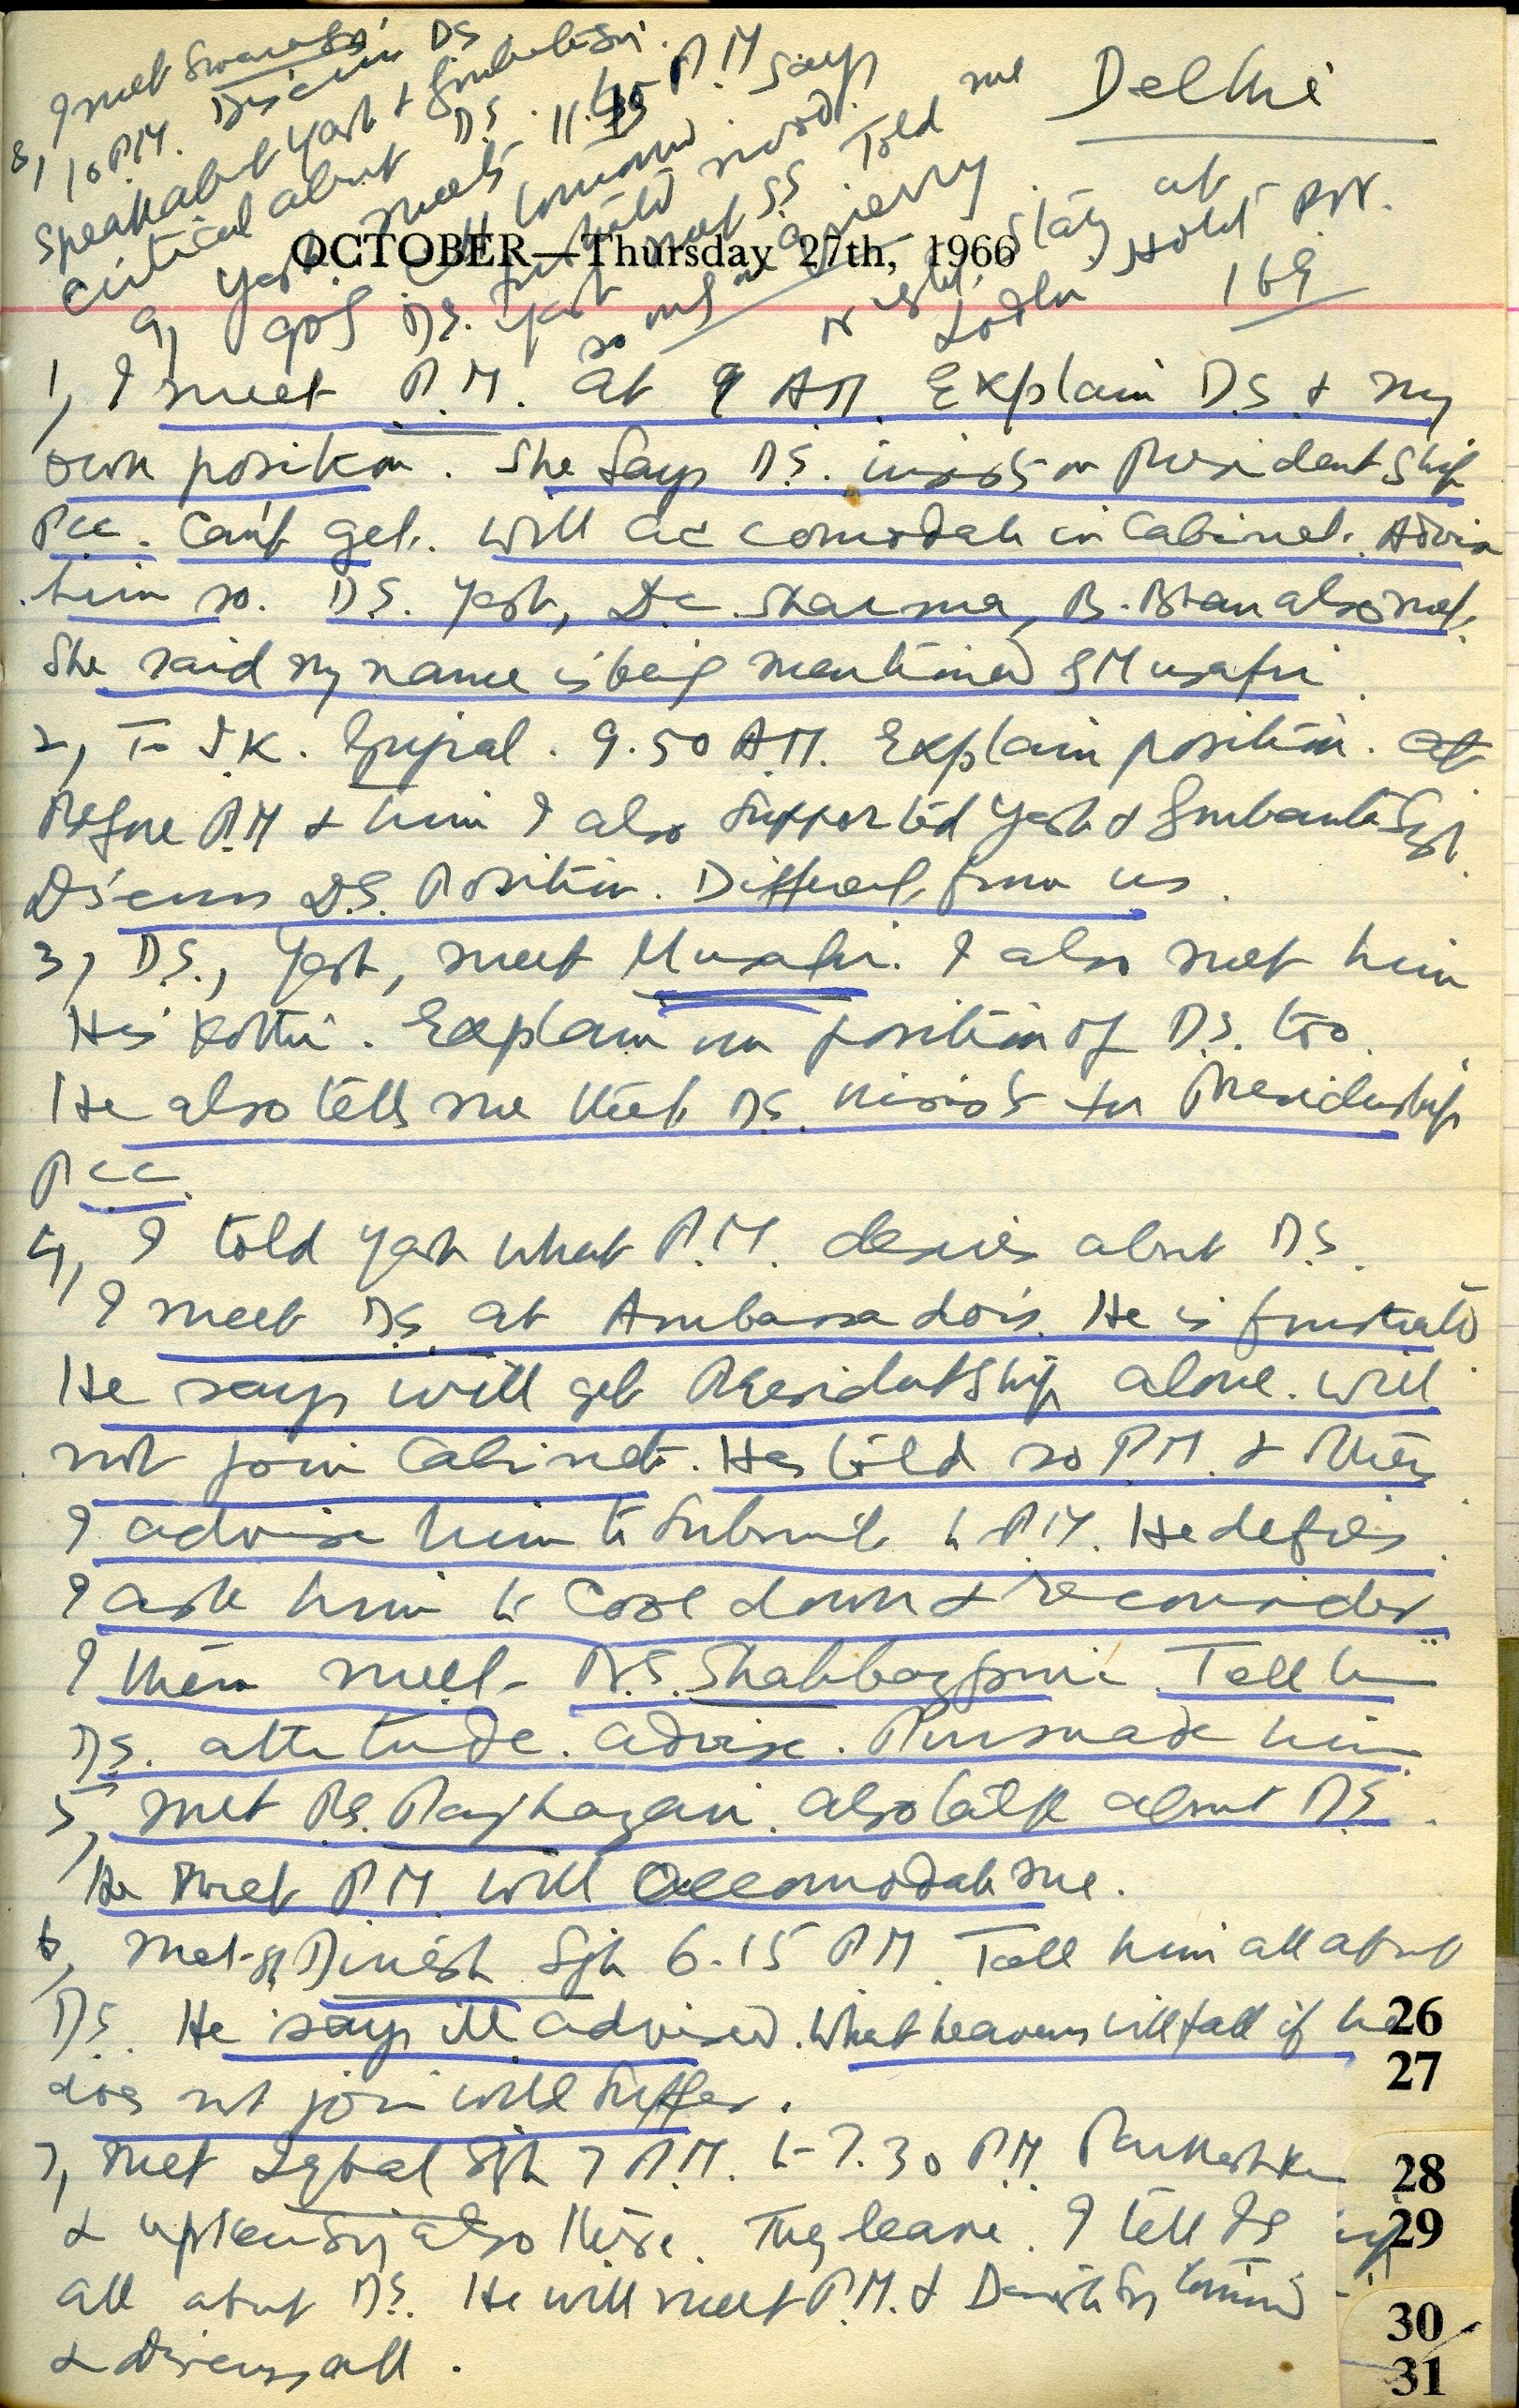 Delhi
8, I met Swaran Sgh
10 P.M. Discuss DS
speak about Yash & Gurbanta Sgh.
critical about DS.
9, Yash meets 11.45 P.M. says
DS. Yash met SS Told me
so my
night. Stay at
Lodhi Hotel Rn.
169
OCTOBER—Thursday 27th, 1966
1, I meet P.M. at 9 AM. Explain D.S. & my
own position. She says D.S. insists on Presidentship
PCC. Can't get. Will accomodate in Cabinet. Advise
him so. D.S. Yash, D.C. Sharma, B. Bhan also met.
She said my name is being mentioned & Musafir.
2, To I.K. Gujral. 9.50 AM. Explain position.
Before P.M & him I also supported Yash & Gurbanta Sgh.
Discuss D.S. Position. Different from us.
3, D.S., Yash, meet Musafir. I also met him
His Kothi. Explain position of D.S. too.
He also tells me that D.S. insists for Presidentship
PCC.
4, I told Yash what P.M. desires about D.S.
I meet DS at Ambassadors. He is frustrated
He says will get Presidentship alone. Will
not join Cabinet. He told so P.M. & others
I advise him to submit to P.M. He defies.
I ask him to cool down & reconsider
I then meet N.S. Shahbazpuri. Tell him
DS. attitude. advise. Pursuade him
5, met Raghazani. also talk about D.S.
He met P.M. will accomodate me.
6, met Dinesh Sgh 6.15 P.M. Tell him all about
DS. He says ill advised. What heavens will fall if he
does not join will suffer.
7, met Iqbal Sgh 7 P.M. to 7.30 P.M. Parkash Kaur
& also there. They leave. I tell IS
all about D.S. He will meet P.M. & Dinesh Sgh tomorrow
& discuss all.
26
27
28
29
30
31